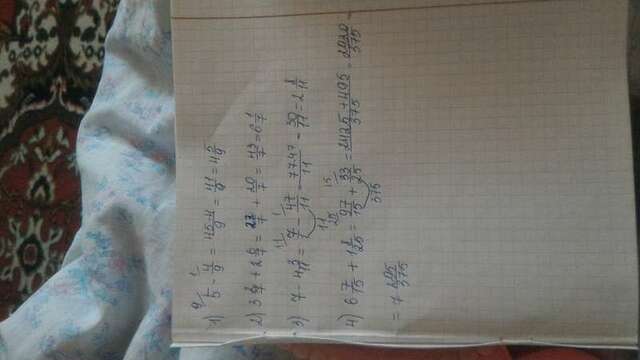 1) 5 - 4/9 = 45-4/9 = 41/9 = 4 5/9
2) 3 2/7 + 2 6/7 = 23/7 + 20/7 = 43/7 = 6 1/7
3) 7 - 4 3/11 = 7 - 47/11 = 77-47/11 = 30/11 = 2 8/11
4) 6 7/15 + 1 8/25 = 97/15 + 33/25 = 2425+495/375 = 2920/375
= 7 295/375